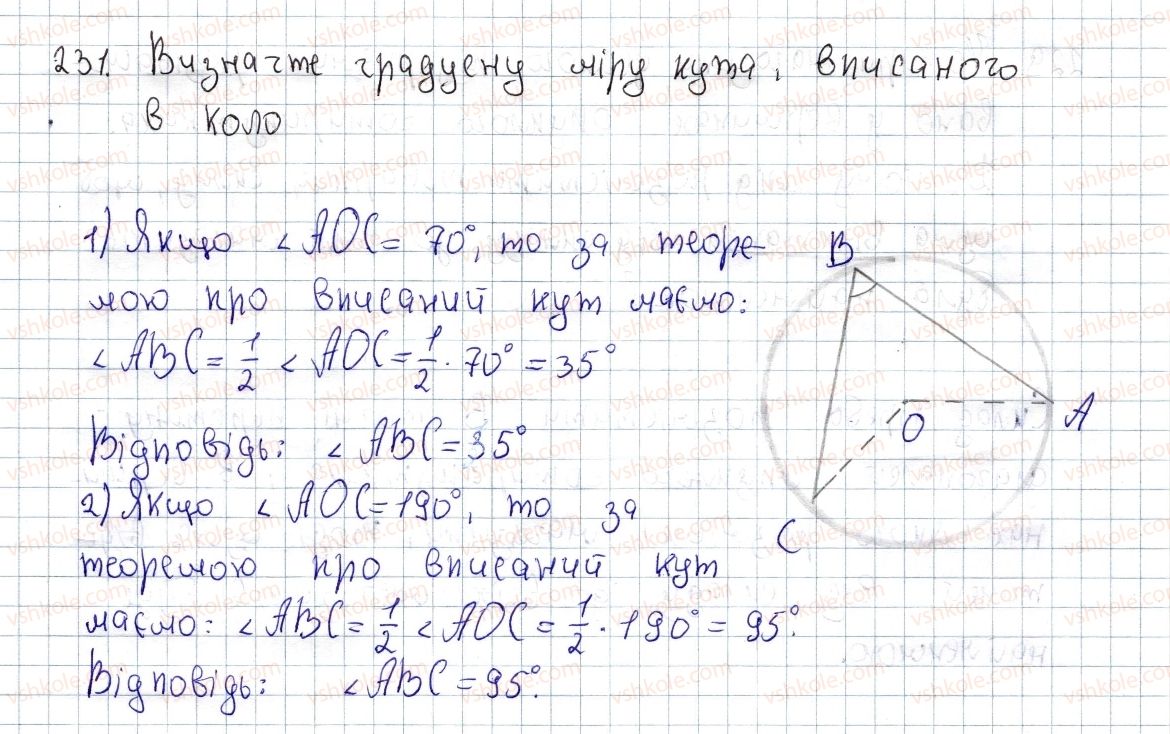 231. Визначте градусну міру кута, вписаного
в коло
1) Якщо ∠AOC = 70°, то за теоре-
мою про вписаний кут маємо:
∠ABC = 1/2 ∠AOC = 1/2 · 70° = 35°
Відповідь: ∠ABC = 35°
2) Якщо ∠AOC = 190°, то за
теоремою про вписаний кут
маємо: ∠ABC = 1/2 ∠AOC = 1/2 · 190° = 95°.
Відповідь: ∠ABC = 95°.
B
O
A
C
vshkole.com